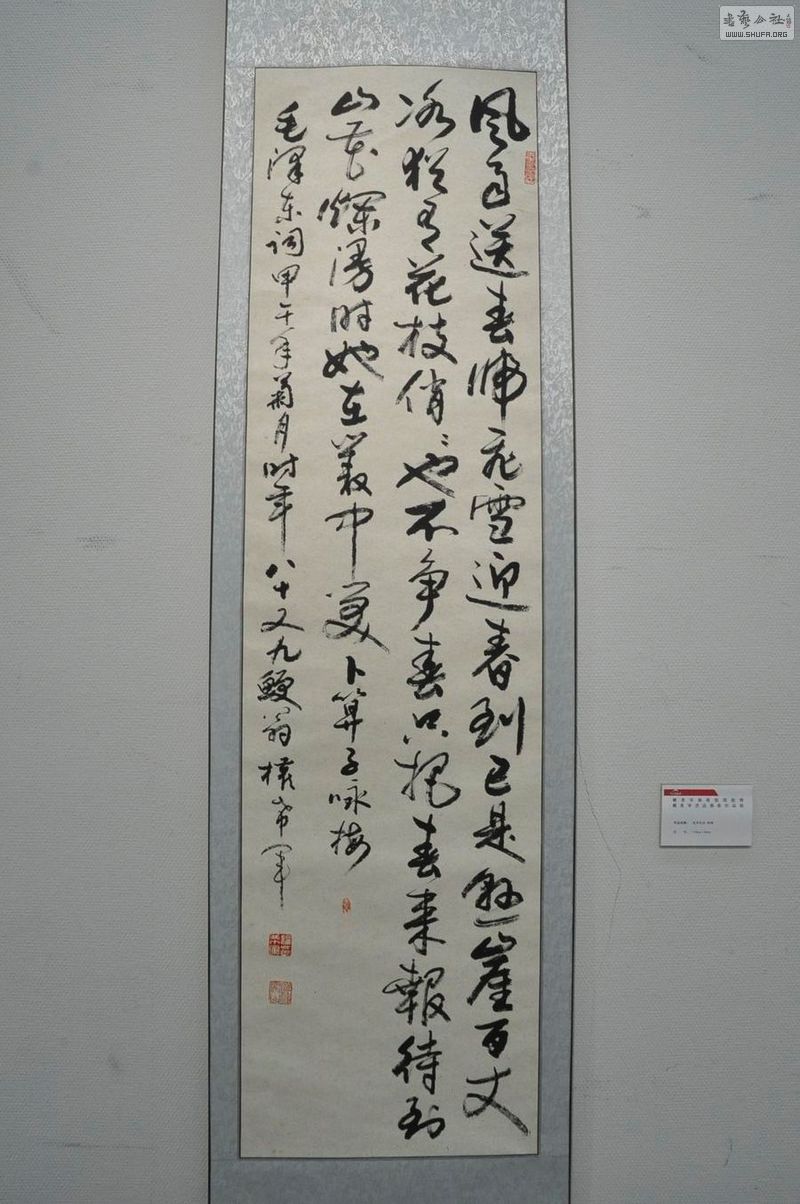 风雨送春归飛雪迎春到已是懸崖百丈
冰犹有花枝俏〻也不争春只把春来報待到
山花爛漫时她在叢中笑卜算子咏梅
毛泽东词甲午年菊月时年八十又九鯁翁權希军
書藝公社
WWW.SHUFA.ORG